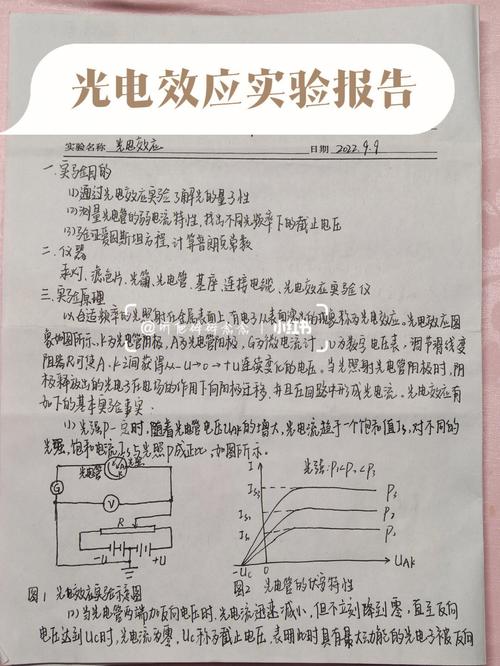 光电效应实验报告
实验名称 光电效应 日期 2022.9.9
一.实验目的
(1)通过光电效应实验了解光的量子性
(2)测量光电管的弱电流特性,找出不同光频率下的截止电压
(3)验证爱因斯坦方程,计算普朗克常数
二.仪器
汞灯、滤色片、光阑、光电管、基座、连接电缆、光电效应实验仪
三.实验原理
以合适频率的光照射在金属表面上,有电子从表面逸出的现象称为光电效应。光电效应图
象如图所示、K为光电管阴极,A为光电管阳极,G为微电流计,U为数字电压表,调节滑线变
阻器R可使A、K之间获得从-U→0→+U连续变化的电压。当光照射光电管阴极时,阴
极释放出的光电子在电场的作用下向阳极迁移,并且在回路中形成光电流。光电效应有
如下的基本实验事实:
(1)光强P一定时,随着光电管电压UAK的增大,光电流趋于一个饱和值Is,对不同的
光强,饱和电流Is与光照P成正比,如图所示。
光电管
光
A
K
G
V
R
-U
+U
I
光强:P1<P2<P3
Is3
Is2
Is1
P3
P2
P1
-Uc
0
UAK
图1 光电效应实验示意图
图2 光电管的伏安特性
(2)当光电管两端加反向电压时,光电流迅速减小,但不立刻降到零,直至反向
电压达到Uc时,光电流为零,Uc称为截止电压,表明此时具有最大动能的光电子被反向
小红书